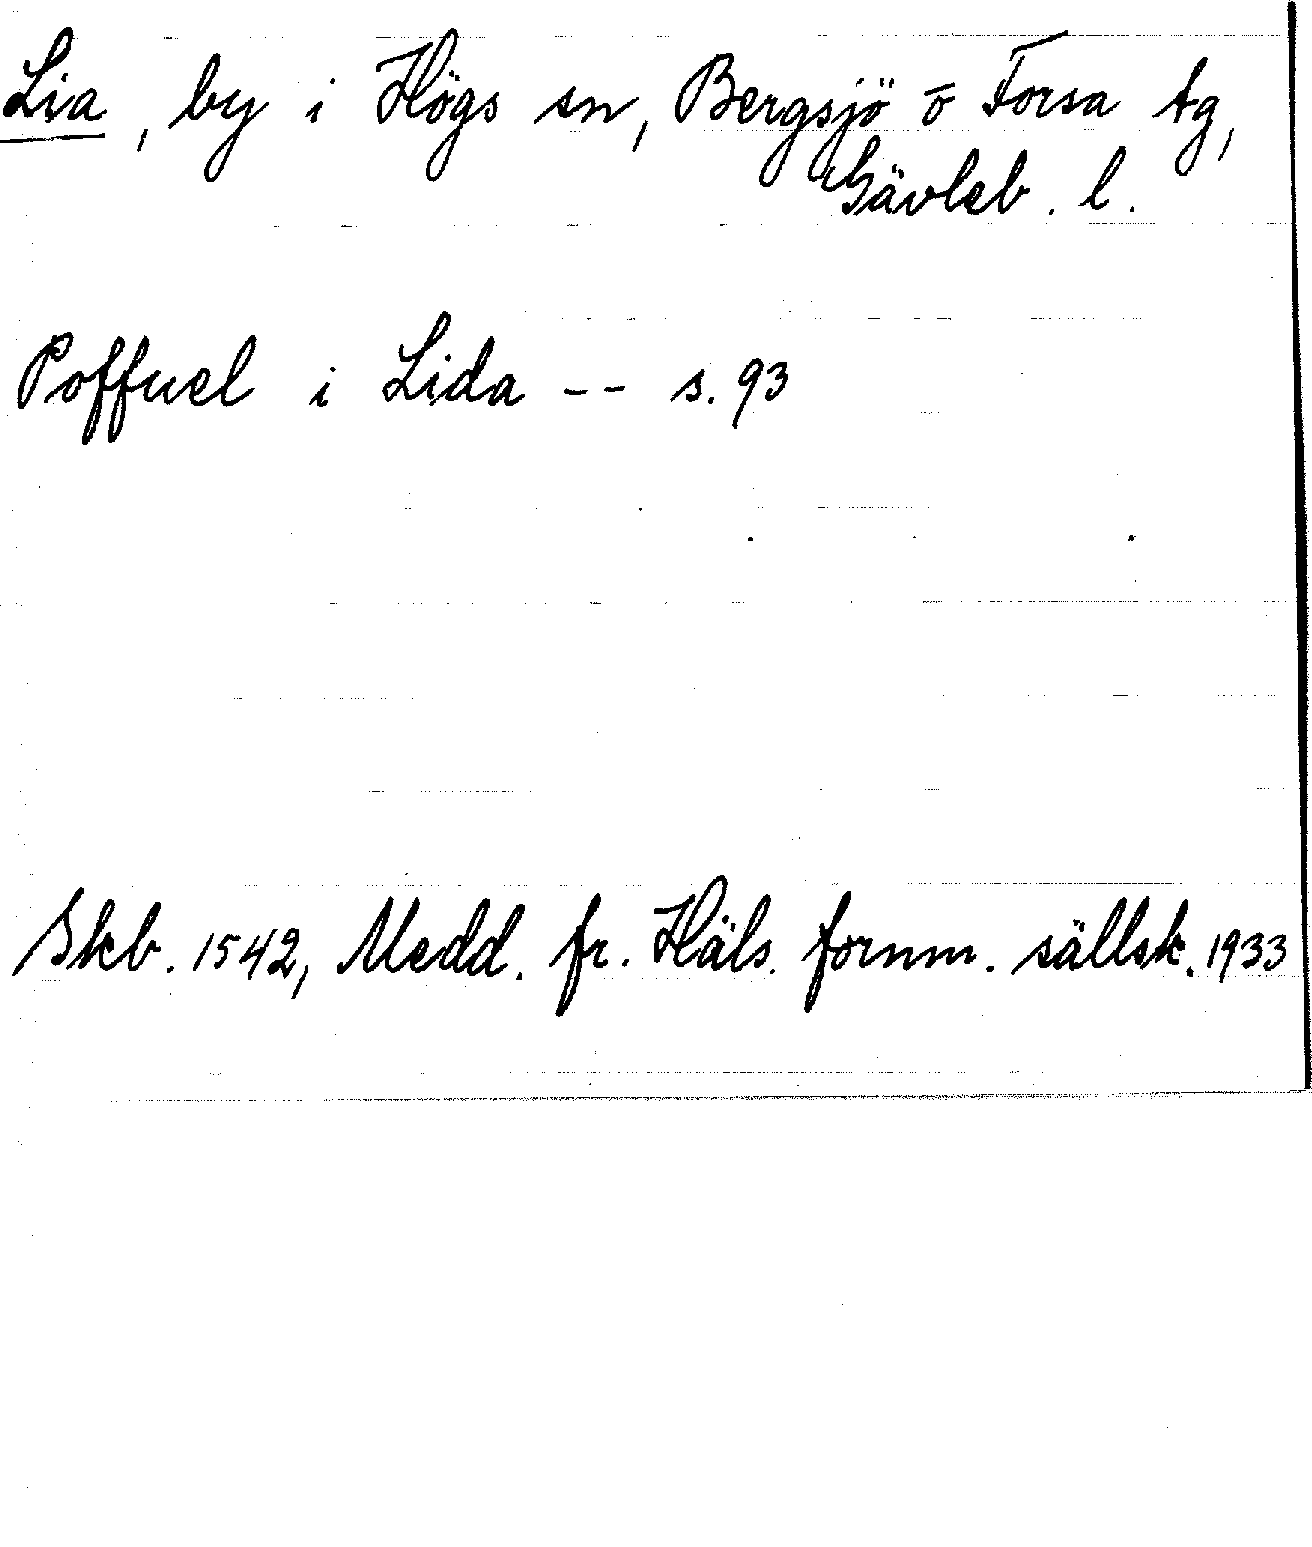 Lia, by i Högs sn, Bergsjö o Forsa tg,
Gävleb. l.
Poffuel i Lida -- s. 93
Skb. 1542, Medd. fr. Häls. fornm. sällsk. 1933